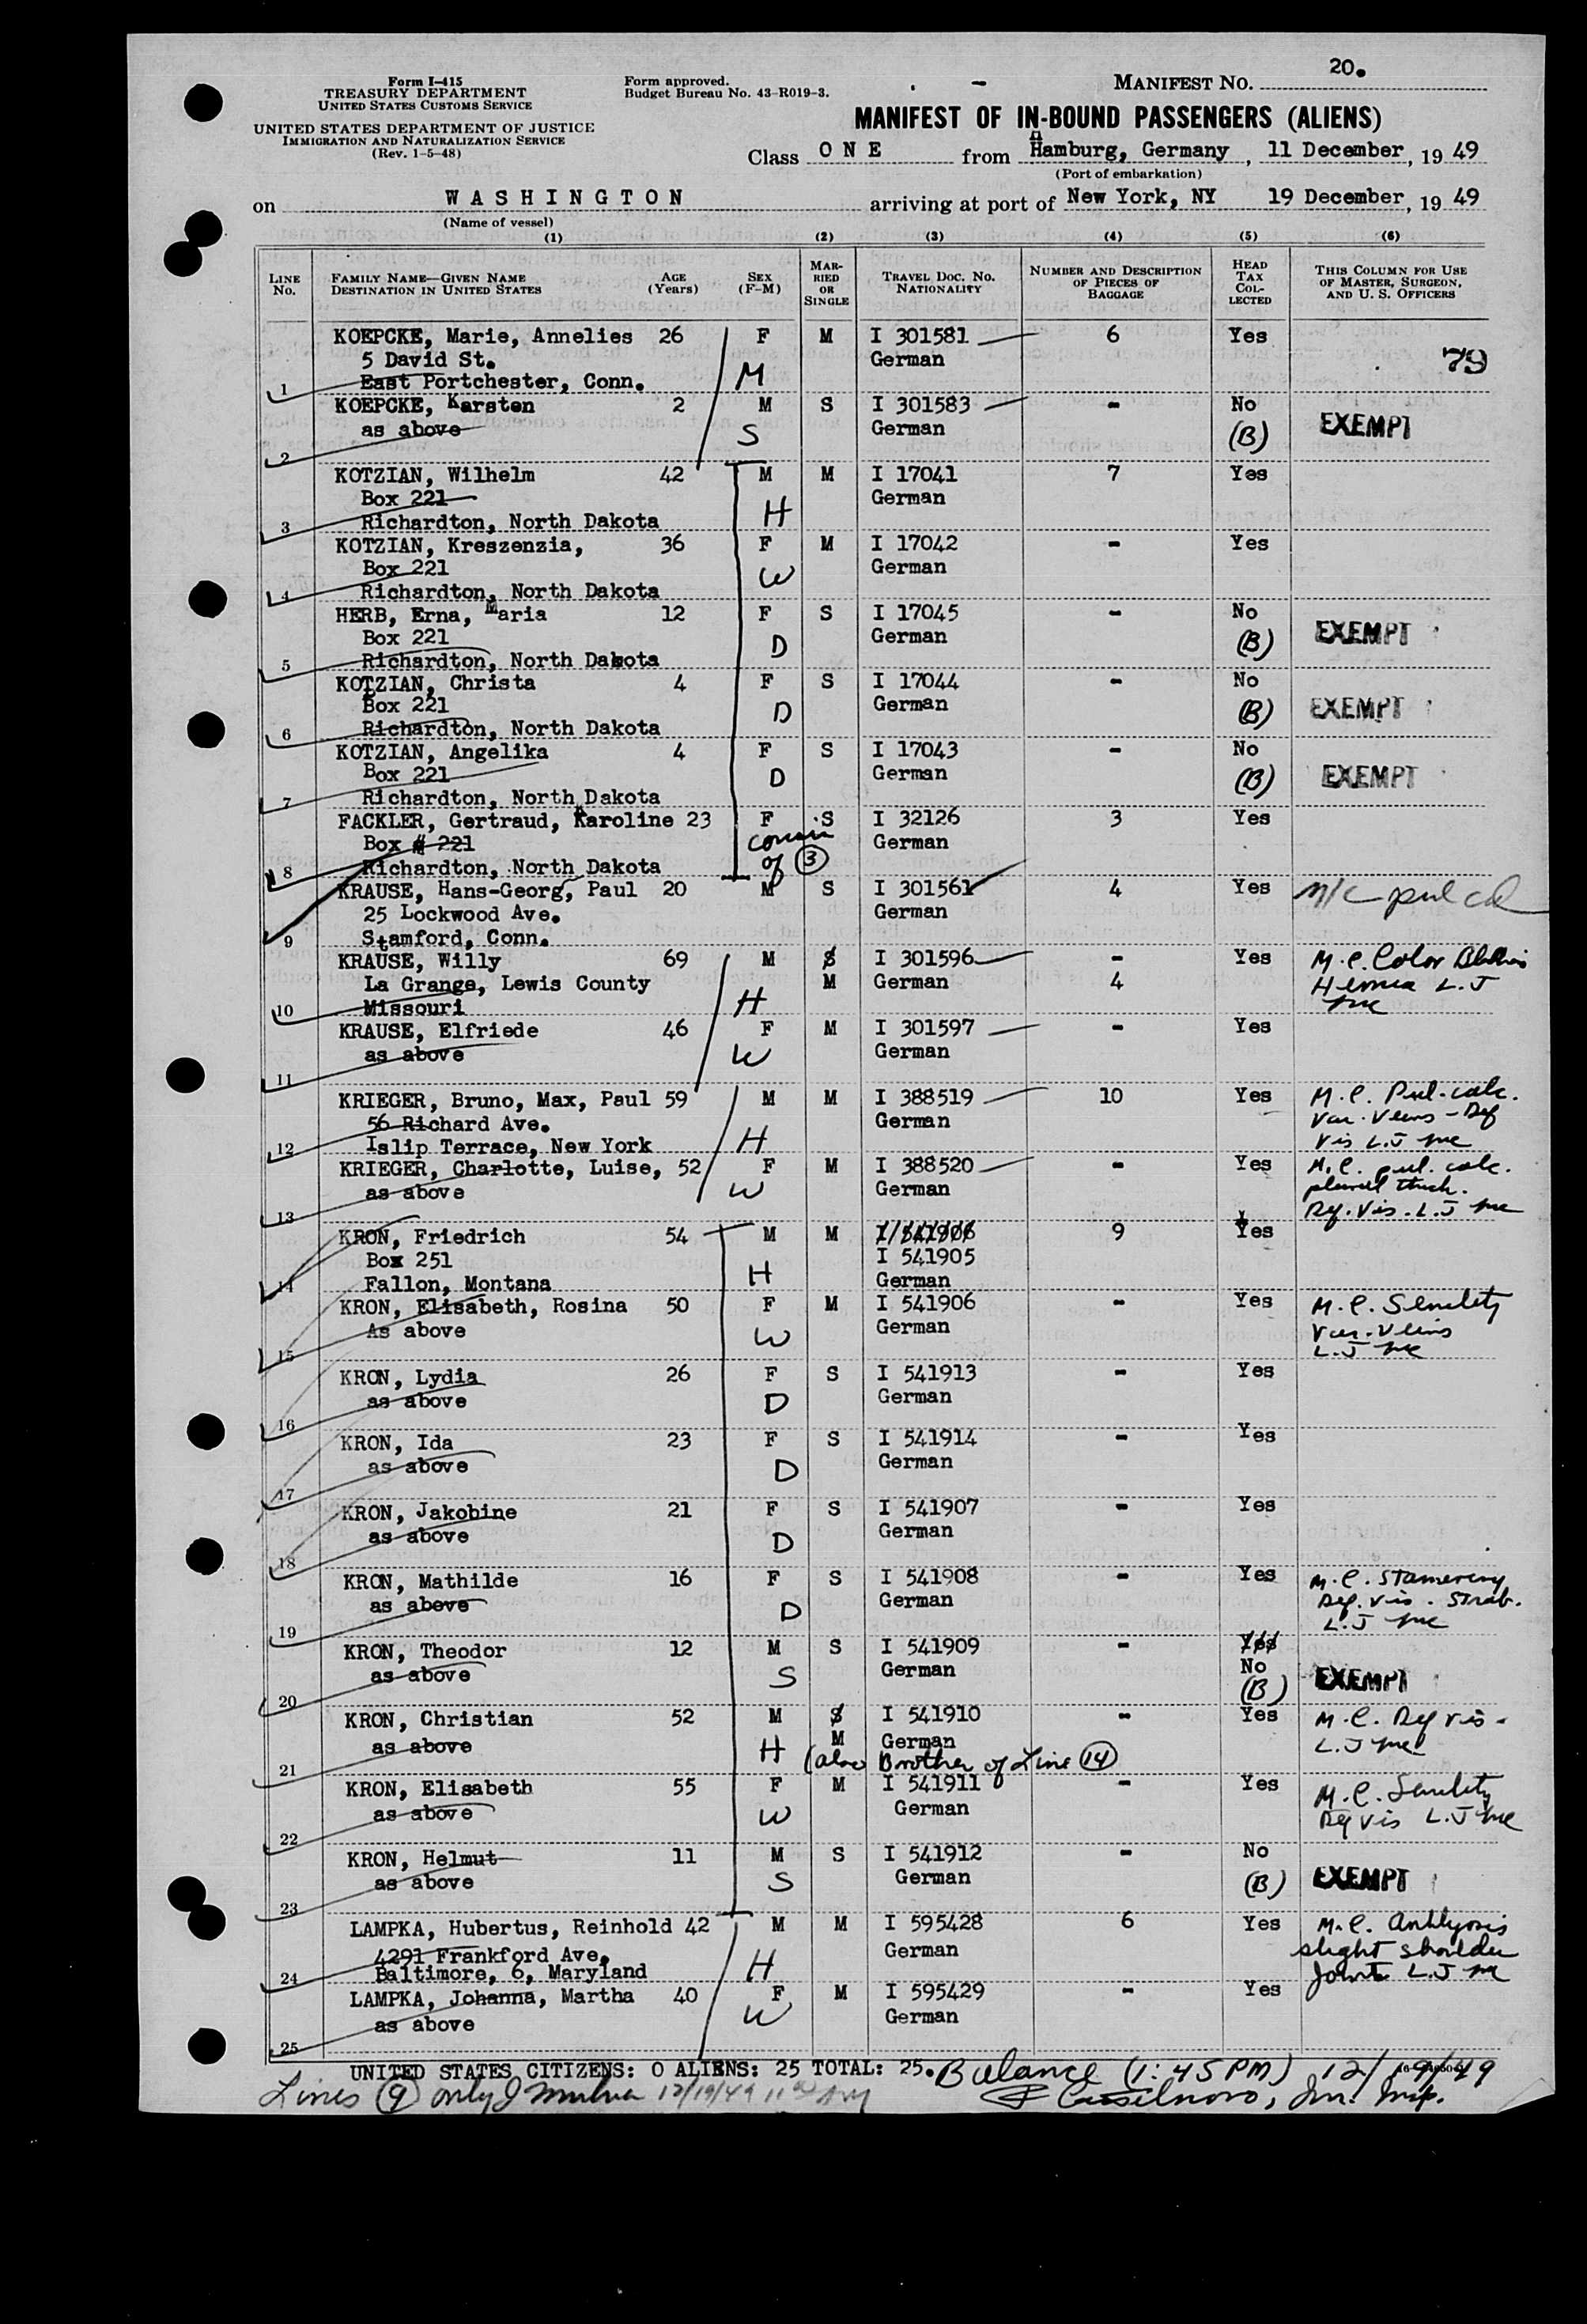 Form I-415
TREASURY DEPARTMENT
UNITED STATES CUSTOMS SERVICE
UNITED STATES DEPARTMENT OF JUSTICE
IMMIGRATION AND NATURALIZATION SERVICE
(Rev. 1-5-48)
Form approved.
Budget Bureau No. 43-R019-3.
MANIFEST NO. 20.
MANIFEST OF IN-BOUND PASSENGERS (ALIENS)
Class ONE from Hamburg, Germany, 11 December, 19 49
(Port of embarkation)
on WASHINGTON arriving at port of New York, NY 19 December, 19 49
(Name of vessel)
(1) (2) (3) (4) (5) (6)
LINE No. FAMILY NAME—GIVEN NAME DESTINATION IN UNITED STATES AGE (Years) SEX (F-M) MARRIED OR SINGLE TRAVEL DOC. NO. NATIONALITY NUMBER AND DESCRIPTION OF PIECES OF BAGGAGE HEAD TAX COLLECTED THIS COLUMN FOR USE OF MASTER, SURGEON, AND U. S. OFFICERS
KOEPCKE, Marie, Annelies 26 F M I 301581 6 Yes
5 David St. German 79
1 East Portchester, Conn. M
KOEPCKE, Karsten 2 M S I 301583 - No
as above S German (B) EXEMPT
2
KOTZIAN, Wilhelm 42 M M I 17041 7 Yes
Box 221 H German
3 Richardton, North Dakota
KOTZIAN, Kreszenzia, 36 F M I 17042 - Yes
Box 221 W German
4 Richardton, North Dakota
HERB, Erna, Maria 12 F S I 17045 - No
Box 221 D German (B) EXEMPT
5 Richardton, North Dakota
KOTZIAN, Christa 4 F S I 17044 - No
Box 221 D German (B) EXEMPT
6 Richardton, North Dakota
KOTZIAN, Angelika 4 F S I 17043 - No
Box 221 D German (B) EXEMPT
7 Richardton, North Dakota
FACKLER, Gertraud, Karoline 23 F S I 32126 3 Yes
Box # 221 cousin German
8 Richardton, North Dakota of (3)
KRAUSE, Hans-Georg, Paul 20 M S I 301561 4 Yes M/C pul cal
25 Lockwood Ave. German
9 Stamford, Conn.
KRAUSE, Willy 69 M S I 301596 - Yes M.C. Color
La Grange, Lewis County M German 4 Hernia L.J
10 Missouri H
KRAUSE, Elfriede 46 F M I 301597 - Yes
as above W German
11
KRIEGER, Bruno, Max, Paul 59 M M I 388519 10 Yes M.C. Pul-calc.
56 Richard Ave. German Var. Veins - Def
12 Islip Terrace, New York H Vis L.J
KRIEGER, Charlotte, Luise, 52 F M I 388520 - Yes M.C. pul. calc.
as above W German pleural thick.
13 Def. Vis. L.J
KRON, Friedrich 54 M M I 541906 9 Yes
Box 251 H I 541905
14 Fallon, Montana German
KRON, Elisabeth, Rosina 50 F M I 541906 - Yes M.C. Senility
As above W German Var. Veins
15 L.J
KRON, Lydia 26 F S I 541913 - Yes
as above D German
16
KRON, Ida 23 F S I 541914 - Yes
as above D German
17
KRON, Jakobine 21 F S I 541907 - Yes
as above D German
18
KRON, Mathilde 16 F S I 541908 - Yes M.C. Stamering
as above D German Def. vis. Strab.
19 L.J
KRON, Theodor 12 M S I 541909 - Yes
as above S German No
20 (B) EXEMPT
KRON, Christian 52 M S I 541910 - Yes M.C. Def vis-
as above H M German L.J
21 (also Brother of Line (14)
KRON, Elisabeth 55 F M I 541911 - Yes M.C. Senility
as above W German Def vis L.J
22
KRON, Helmut 11 M S I 541912 - No
as above S German (B) EXEMPT
23
LAMPKA, Hubertus, Reinhold 42 M M I 595428 6 Yes M.C. Ankylosis
4291 Frankford Ave. German slight shoulder
24 Baltimore, 6, Maryland H Joint L.J
LAMPKA, Johanna, Martha 40 F M I 595429 - Yes
as above W German
25
UNITED STATES CITIZENS: 0 ALIENS: 25 TOTAL: 25. Balance (1:45PM) 12/19/49
Lines (9) only 12/19/49 Imm. Insp.